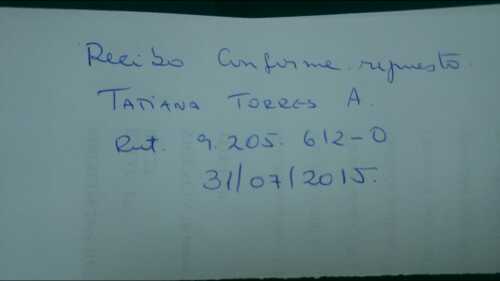 Recibo Conforme repuesto.
TATIANA TORRES A.
Rut. 9.205.612-0
31/07/2015.